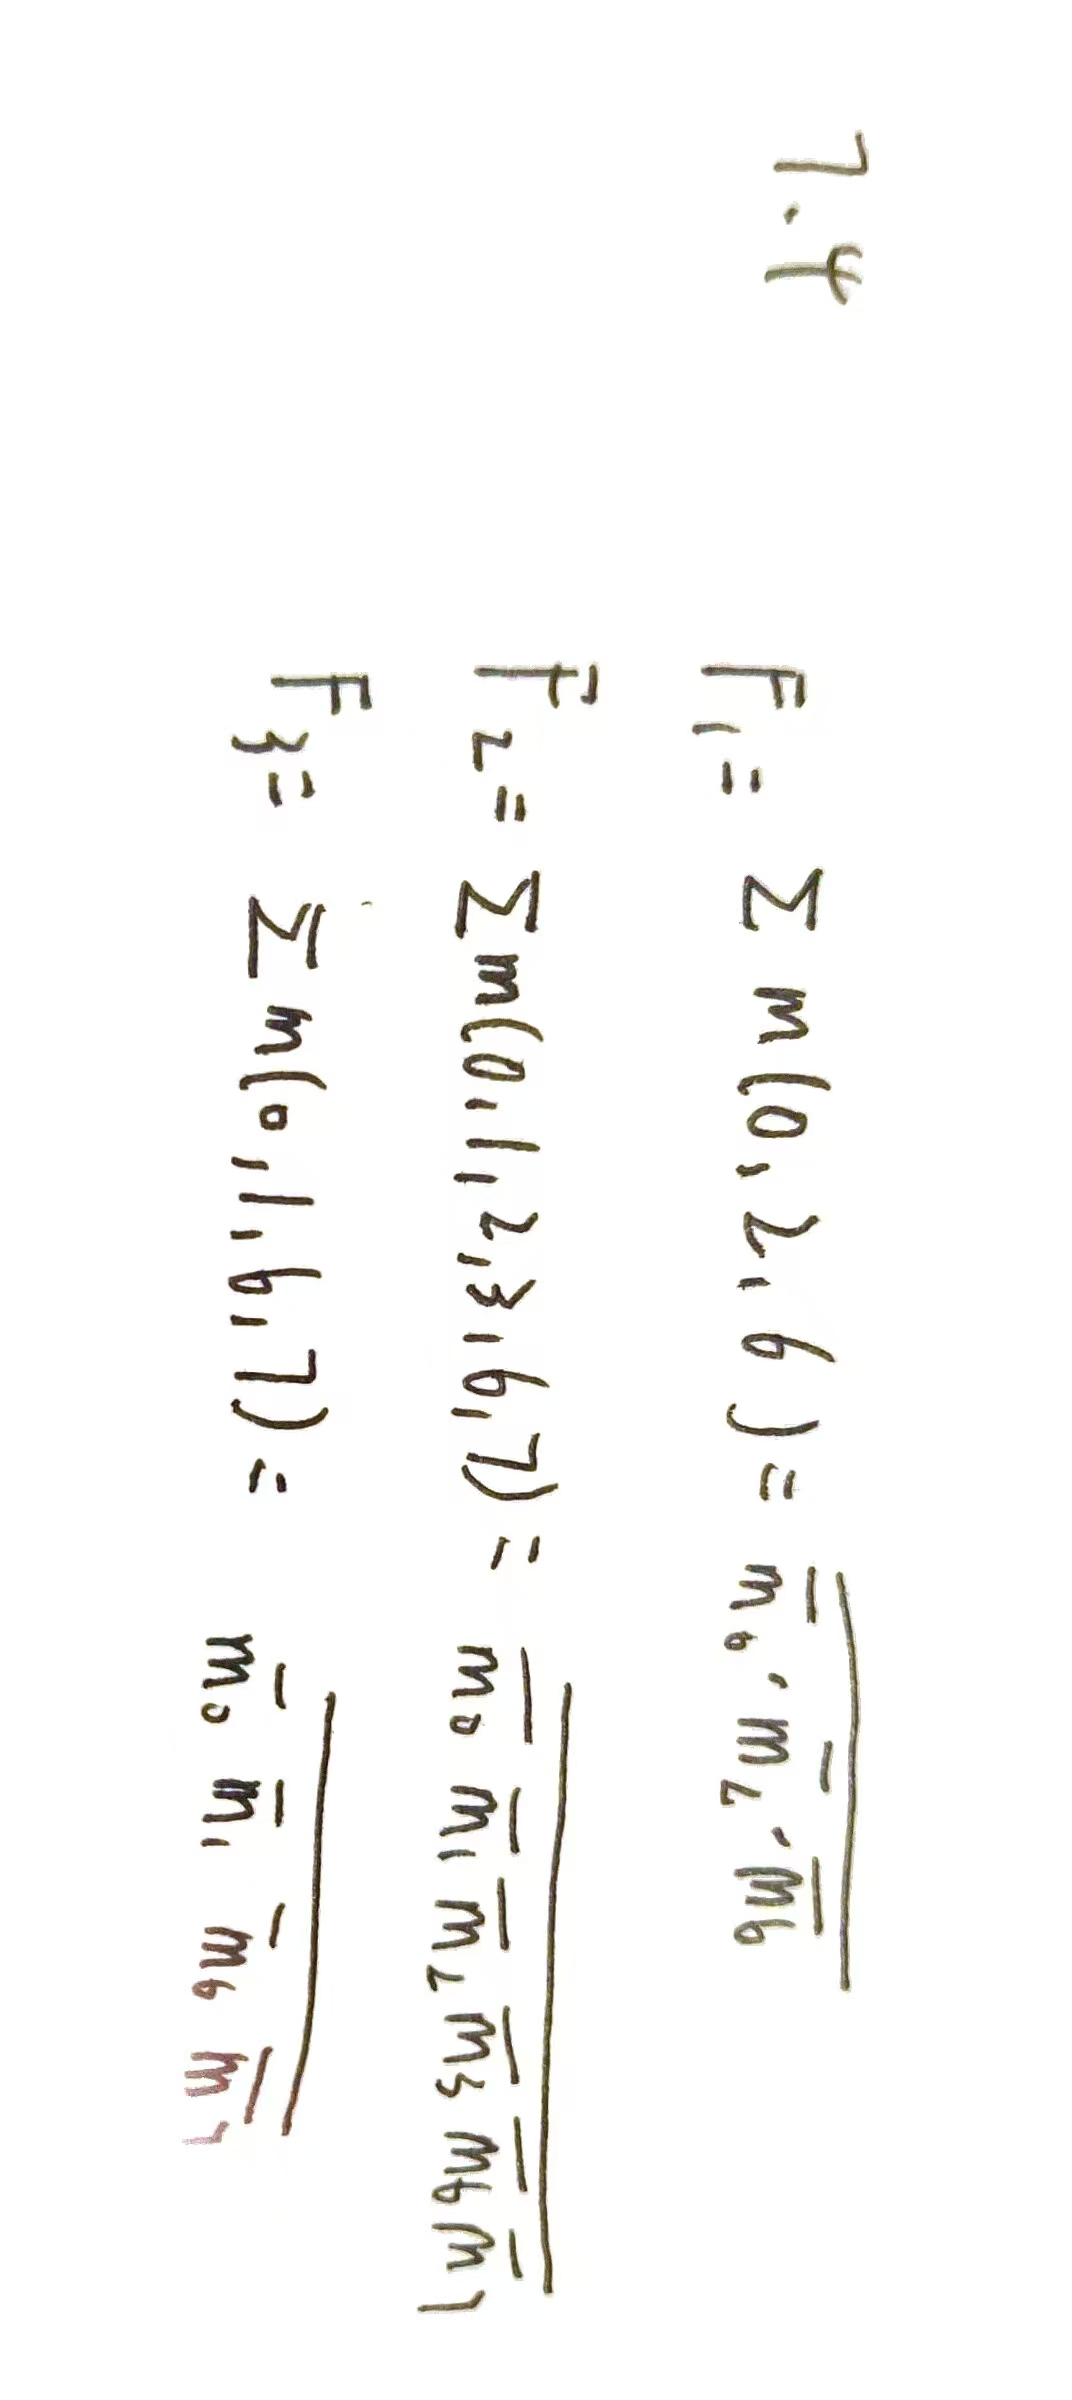 7.4
F₁= Σ m(0,2,6) = \overline{\overline{m}₀·\overline{m}₂·\overline{m}₆}
F₂= Σm(0,1,2,3,6,7) = \overline{\overline{m}₀ \overline{m}₁ \overline{m}₂ \overline{m}₃ \overline{m}₆ \overline{m}₇}
F₃= Σ m(0,1,6,7) = \overline{\overline{m}₀ \overline{m}₁ \overline{m}₆ \overline{m}₇}